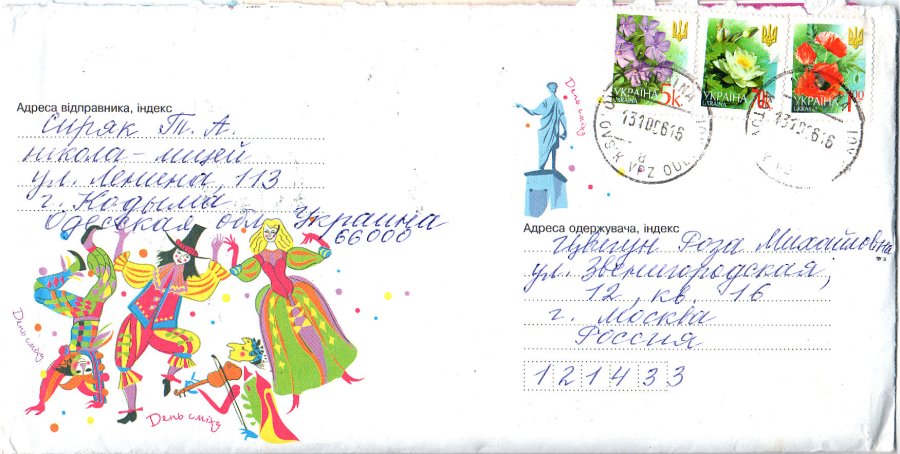 День сміху
УКРАЇНА
UKRAINA
5к.
УКРАЇНА
UKRAINA
УКРАЇНА
UKRAINA
1.00
13100616
13100616
Адреса відправника, індекс
Сиряк Т. А.
школа – лицей
ул. Ленина, 113
г. Кодыма
Одесская обл. Украина
66000
День сміху
День сміху
Адреса одержувача, індекс
Цвигун Роза Михайловна
ул. Звенигородская,
12, кв. 16
г. Москва
Россия
121433